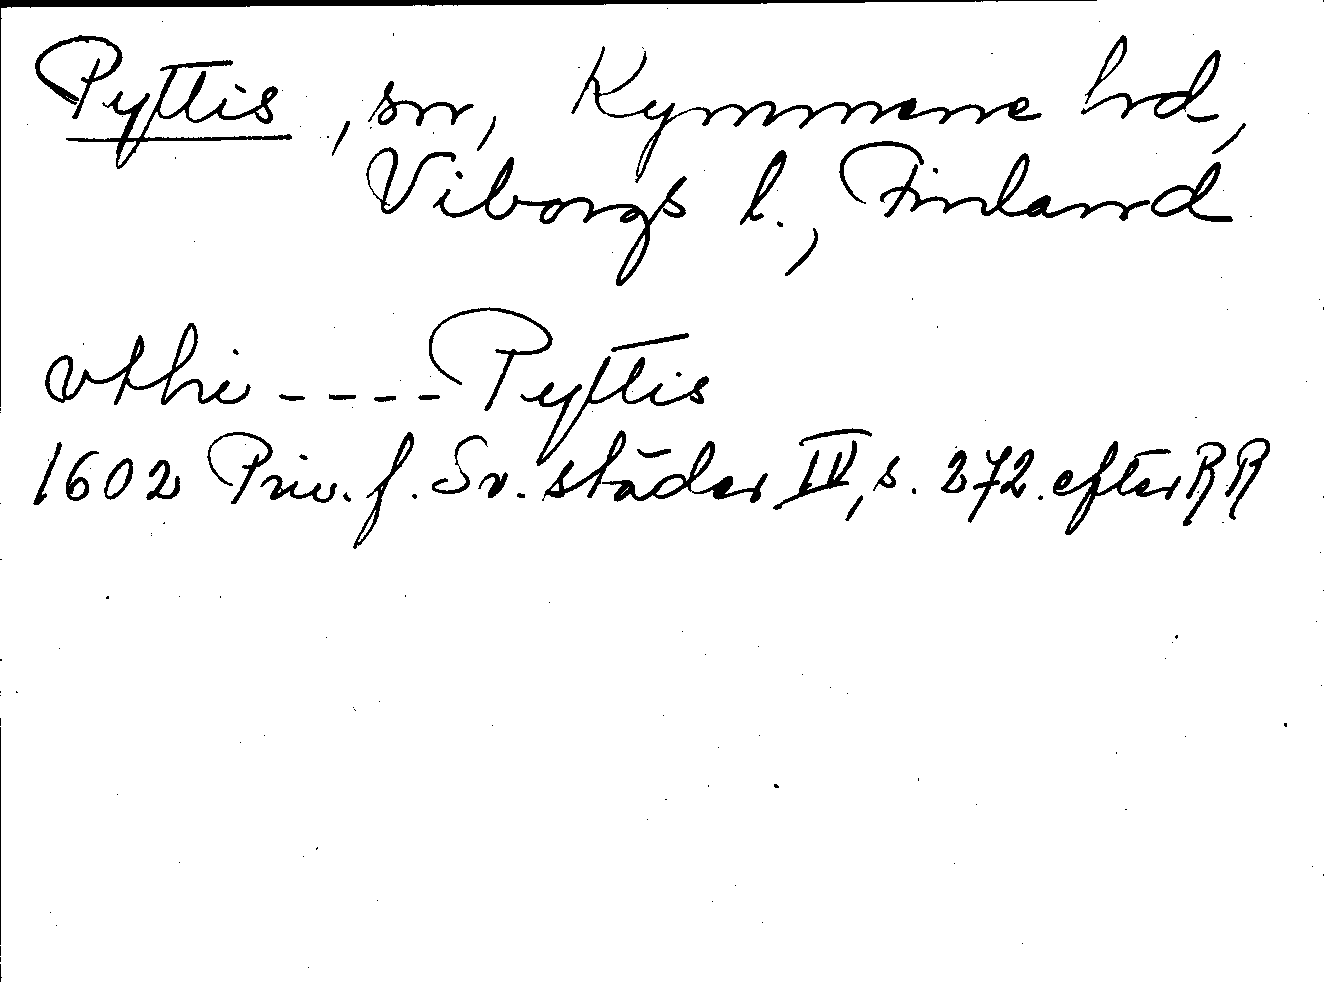 Pyttis, sn, Kymmene hrd,
Viborgs l., Finland
vthi ---- Pyttis
1602 Priv. f. Sv. städer III, s. 272. efter RR